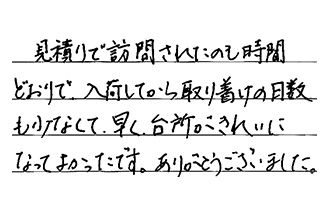 見積りで訪問されたのも時間
どおりで、入荷してから取り着けの日数
も少なくして、早く台所がきれいに
なってよかったです。ありがとうございました。